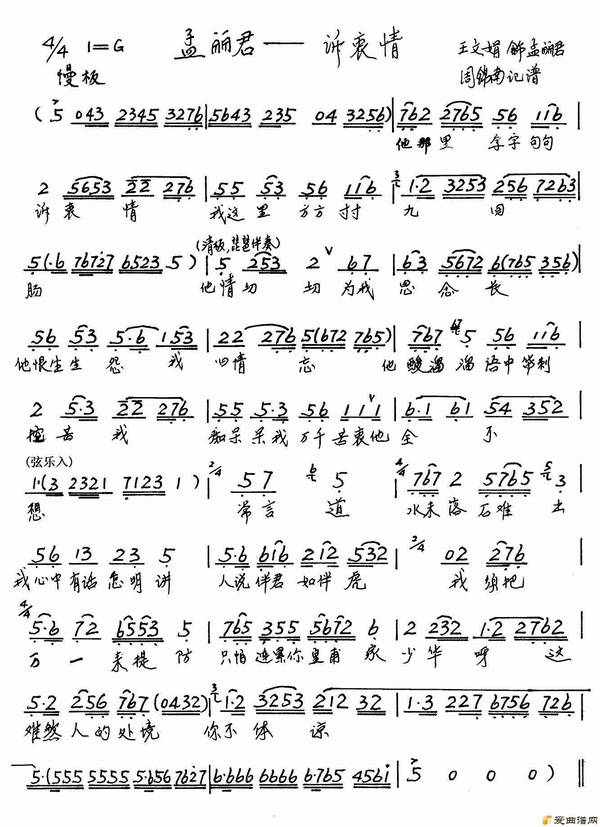 4/4 1=G 孟丽君——诉衷情 王文娟 饰孟丽君
慢板 周锦南记谱
(5 043 2345 3276 | 5643 235 04 3256) | 762 2765 56 116 |
他那里 字字句句
2 5653 22 276 | 55 53 56 116 | 1·2 3253 256 7263 |
诉衷情 我这里 方方寸寸 九回
(清板,琵琶伴奏)
5(·6 76727 6523 5) | 5 253 2 67 | 63 5672 6(765 356) |
肠 他情切切为我思念长
56 53 5·6 153 | 22 276 5(672 765) | 767 5 56 116 |
他恨生生怨我 旧情忘 他酸溜溜语中带刺
2 5·3 22 276 | 55 5·3 56 111 | 6·1 61 54 352 |
挖苦我 痴呆呆我万千苦衷他全不
(弦乐入)
1·(3 2321 7123 1) | 2/4 57 5 | 4/4 767 2 5765 3 |
想 常言道 水未落石难出
56 13 23 5 | 5·6 616 212 532 | 3/4 02 276 |
我心中有话怎明讲 人说伴君如伴虎 我须把
4/4 5·6 72 6553 5 | 765 355 5672 6 | 2 232 1·2 2762 |
万一来提防 只怕连累你皇甫家 少华呀 这
5·2 256 767 (0432) | 1·2 3253 212 32 | 1·3 227 6756 726 |
虽然人的处境 你不体谅
5·(555 5555 5·656 7627 | 6·666 6666 6·765 4561 | 5 0 0 0) |
爱曲谱网